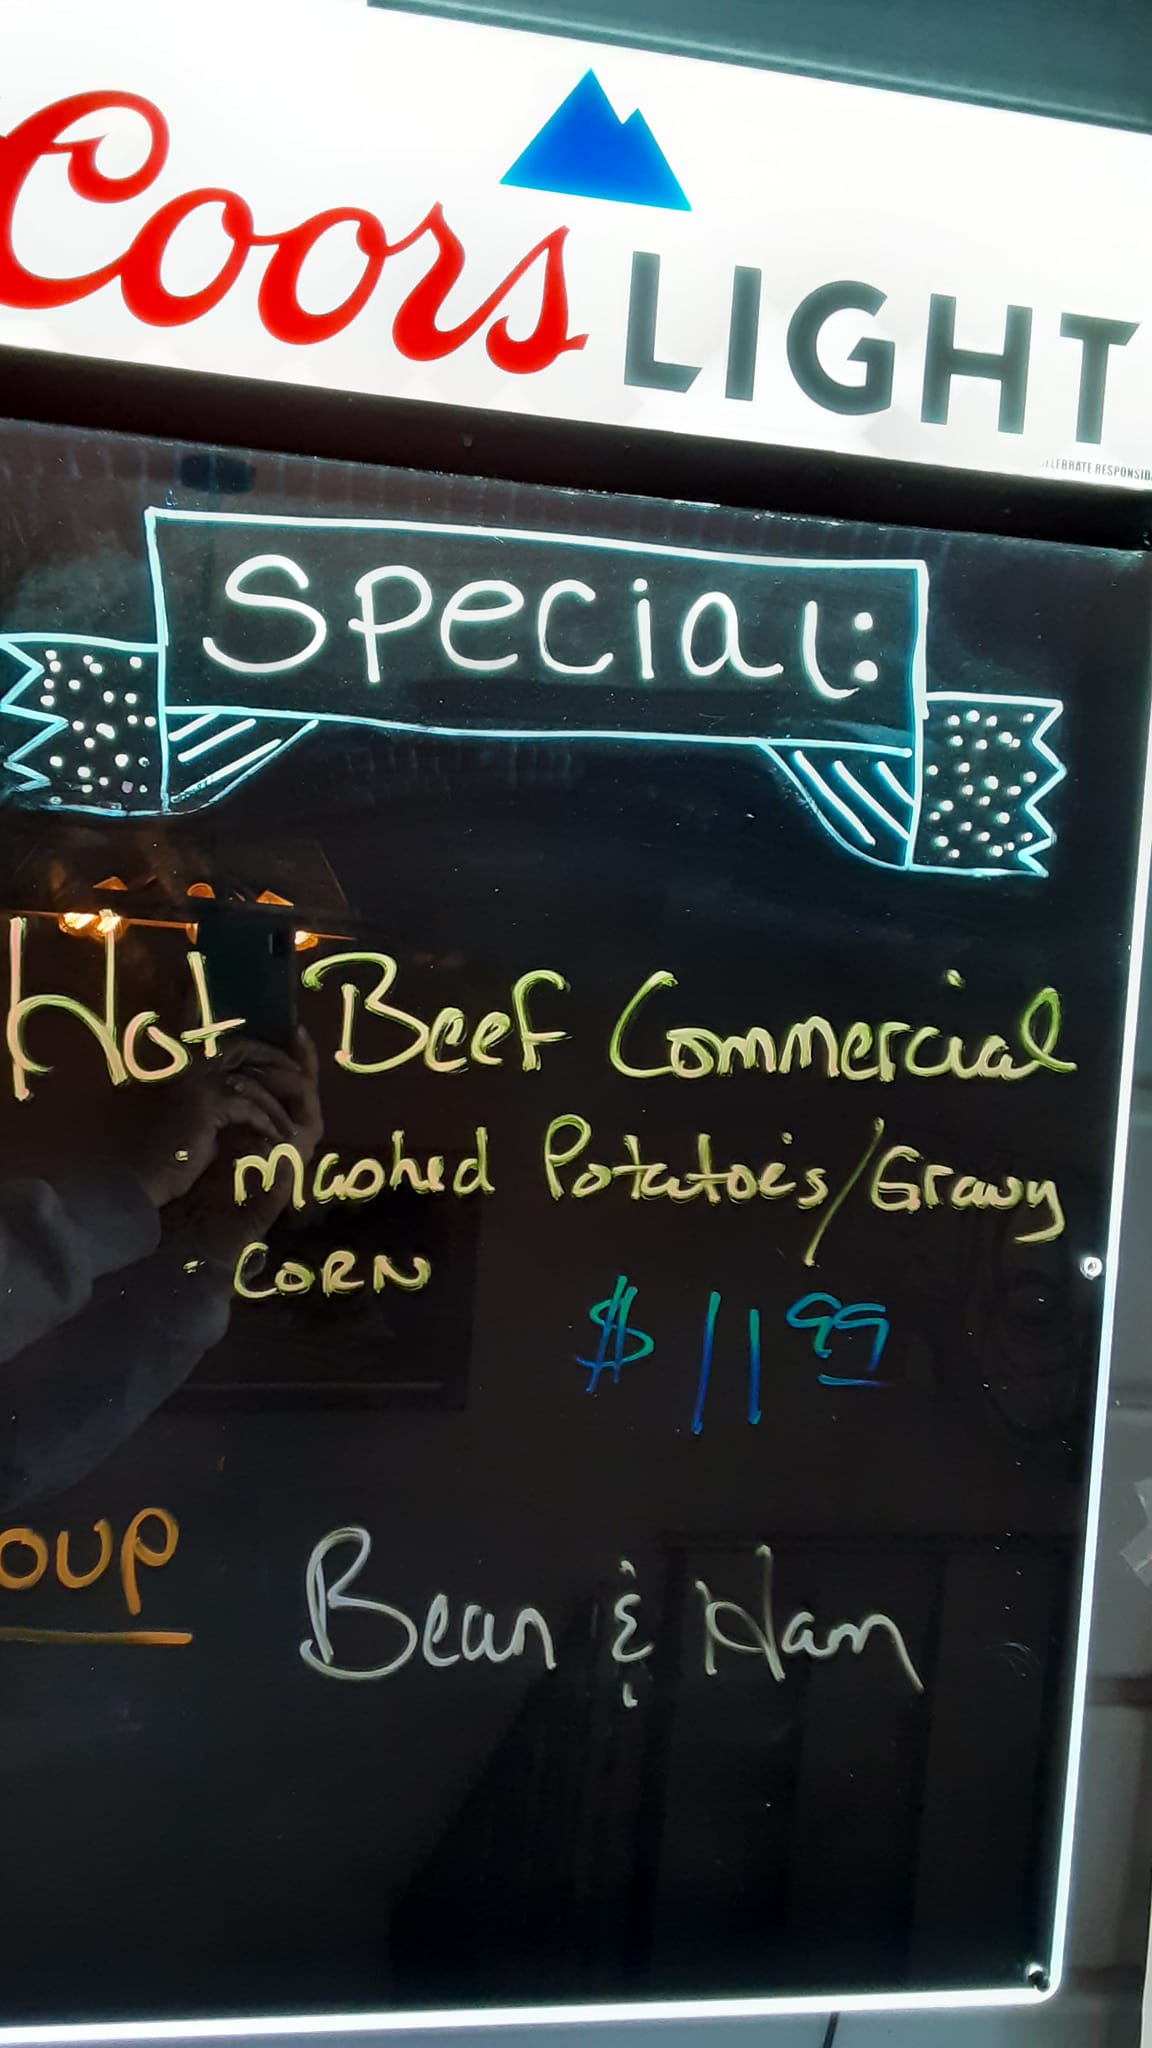 Coors LIGHT
CELEBRATE RESPONSIB
Special:
Hot Beef Commercial
· Mashed Potatoes/Gravy
· CORN
$11.99
oup
Bean & Ham